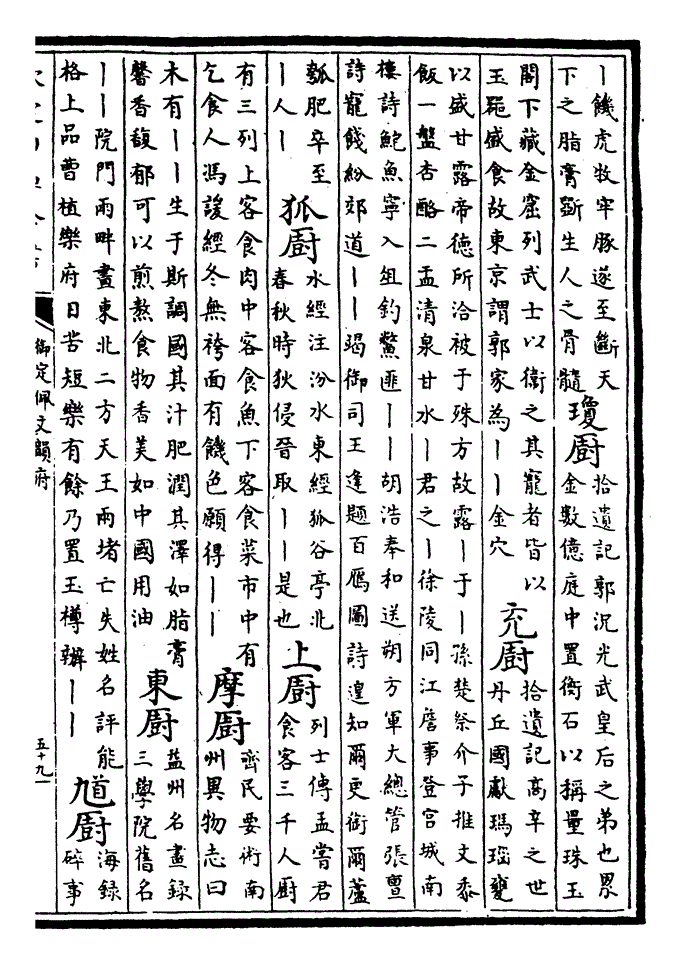 ｜饑虎牧牢豚遂至斷天
下之脂膏斵生人之骨髓
瓊廚
拾遺記郭況光武皇后之弟也累
金數億庭中置衡石以稱量珠玉
閣下藏金窟列武士以衛之其寵者皆以
玉罍盛食故東京謂郭家為｜｜金穴
充廚
拾遺記高辛之世
丹丘國獻瑪瑙甕
以盛甘露帝德所洽被于殊方故露｜于｜孫楚祭介子推文黍
飯一盤杏酪二盂清泉甘水｜君之｜徐陵同江詹事登宫城南
樓詩鮑魚寧入俎釣鱉匪｜｜胡浩奉和送朔方軍大總管張亶
詩寵餞紛郊道｜｜竭御司王逢題百鴈圖詩遑知爾更銜爾蘆
瓠肥卒至
｜人｜
狐廚
水經注汾水東經狐谷亭北
春秋時狄侵晉取｜｜是也
上廚
列士傳孟嘗君
食客三千人廚
有三列上客食肉中客食魚下客食菜市中有
乞食人馮諼經冬無袴面有饑色願得｜｜
摩廚
齊民要術南
州異物志曰
木有｜｜生于斯調國其汁肥潤其澤如脂膏
馨香馥郁可以煎熬食物香美如中國用油
東廚
益州名畫録
三學院舊名
｜｜院門兩畔畫東北二方天王兩堵亡失姓名評能
格上品曹植樂府日苦短樂有餘乃置玉樽辦｜｜
馗廚
海録
碎事
御定佩文韻府
五十九